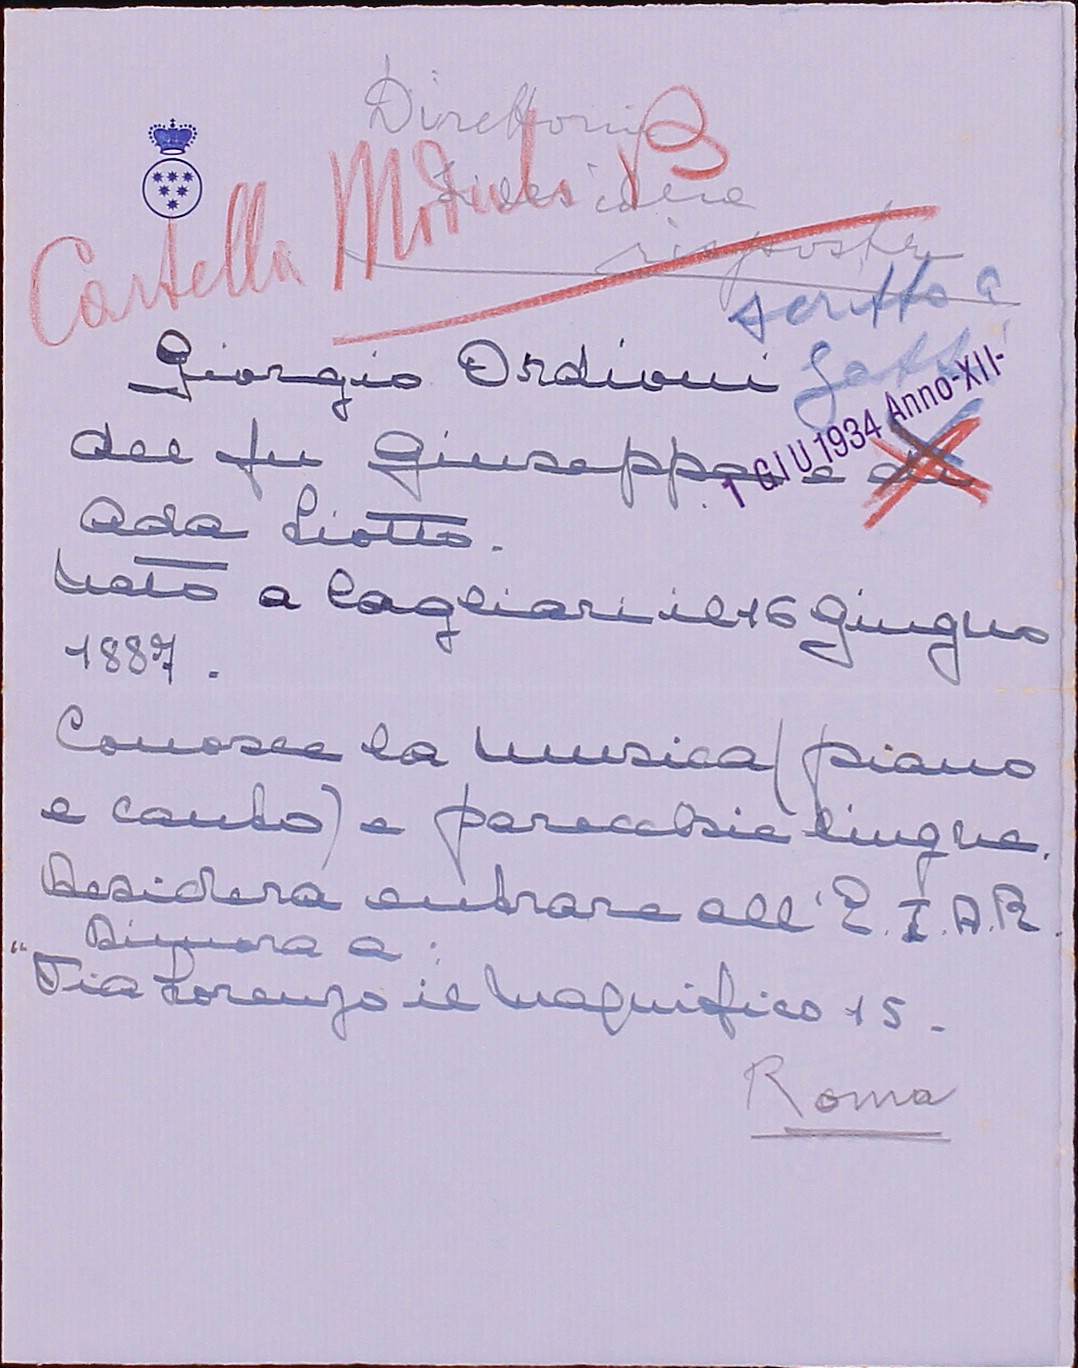 Direttorio
si desidera
risposta
Cartella Moduli B
scritto a
1 GIU 1934 Anno-XII-
Giorgio Ordioni
del fu Giuseppe e di
Ada Liotto.
Nato a Cagliari il 16 Giugno
1887.
Conosce la musica (piano
e canto) e parecchie lingue.
Desidera entrare all'E.I.A.R.
Dimora a:
"Via Lorenzo il Magnifico 15.
Roma